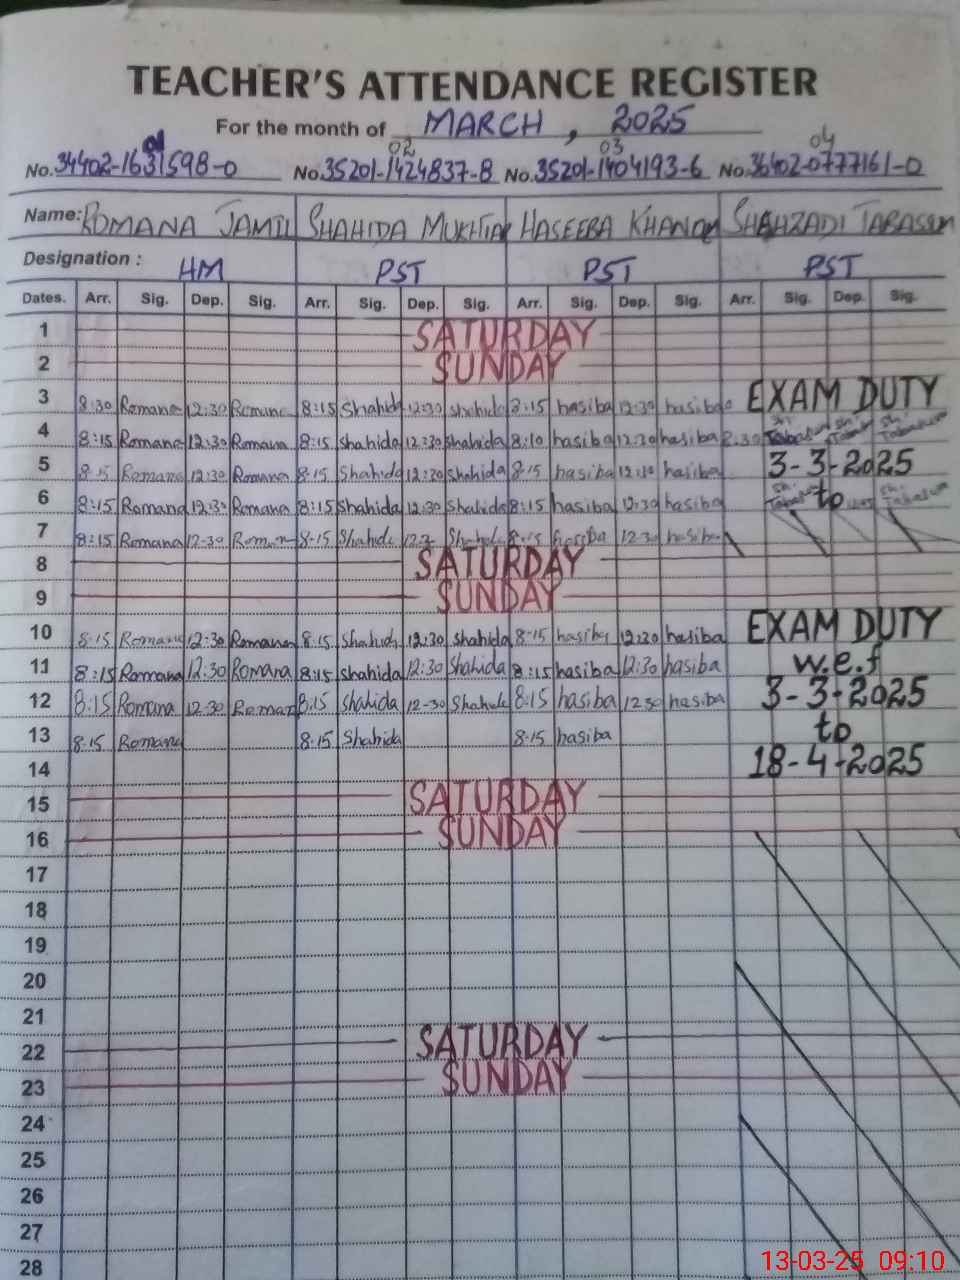 TEACHER'S ATTENDANCE REGISTER
For the month of MARCH, 2025
01 02 03 04
No. 34402-1631598-0 No. 35201-1424837-8 No. 35201-1404193-6 No. 36402-0777161-0
Name: ROMANA JAMIL SHAHIDA MUKHTAR HASEEBA KHANAM SHAHZADI TABASSUM
Designation : HM PST PST PST
Dates. Arr. Sig. Dep. Sig. Arr. Sig. Dep. Sig. Arr. Sig. Dep. Sig. Arr. Sig. Dep. Sig.
1 SATURDAY
2 SUNDAY
3 8:30 Romana 12:30 Romana 8:15 Shahida 12:30 shahida 8:15 hasiba 12:30 hasiba EXAM DUTY
4 8:15 Romana 12:30 Romana 8:15 shahida 12:30 shahida 8:10 hasiba 12:30 hasiba 2.30 sh. Tabasum sh. sh. Tabasum
5 8.15 Romana 12:30 Romana 8.15 Shahida 12:30 Shahida 8.15 hasiba hasiba 3-3-2025
6 8:15 Romana 12:30 Romana 8:15 shahida 12:30 Shahida 8:15 hasiba 12:30 hasiba sh. to sh. Tabasum
7 8:15 Romana 12-30 Roman 8-15 Shahida hasiba hasiba
8 SATURDAY
9 SUNDAY
10 8.15 Romana 12:30 Romana 8.15 Shahida 12:30 shahida 8-15 hasiba 12:30 hasiba EXAM DUTY
11 8:15 Romana 12:30 Romana 8:15 shahida 12:30 Shahida 8:15 hasiba 12:30 hasiba w.e.f
12 8:15 Romana 12-30 Roman 8:15 shahida 12-30 Shahida 8:15 hasiba 12 30 hasiba 3-3-2025
13 8.15 Romana 8.15 Shahida 8.15 hasiba to
14 18-4-2025
15 SATURDAY
16 SUNDAY
17
18
19
20
21
22 SATURDAY
23 SUNDAY
24
25
26
27
28
13-03-25 09:10